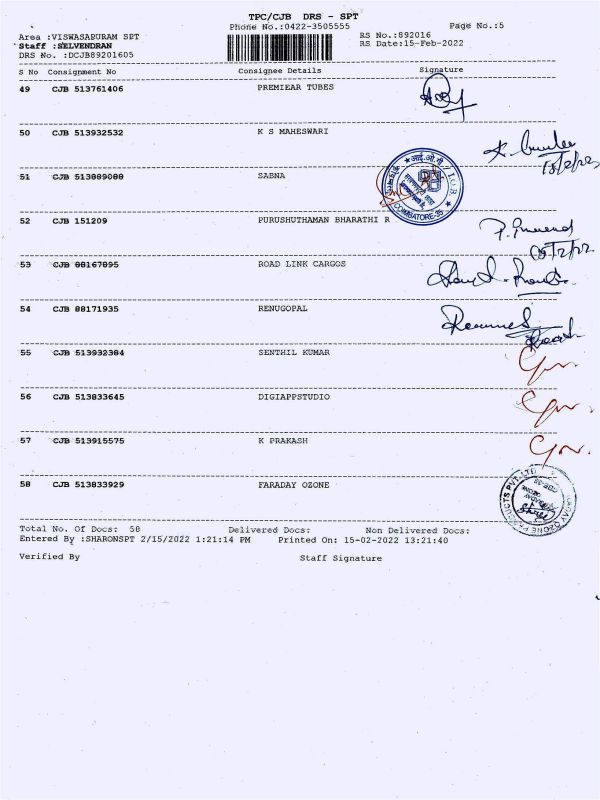 TPC/CJB DRS - SPT
Phone No.:0422-3505555 Page No.:5
Area :VISWASAPURAM SPT RS No.:892016
Staff :SELVENDRAN RS Date:15-Feb-2022
DRS No. :DCJB89201605
S No Consignment No Consignee Details Signature
49 CJB 513761406 PREMIEAR TUBES
50 CJB 513932532 K S MAHESWARI
15/2/22
51 CJB 513889088 SABNA
COIMBATORE-35
52 CJB 151209 PURUSHUTHAMAN BHARATHI R
53 CJB 88167895 ROAD LINK CARGOS
54 CJB 88171935 RENUGOPAL
55 CJB 513932384 SENTHIL KUMAR
56 CJB 513833645 DIGIAPPSTUDIO
57 CJB 513915575 K PRAKASH
58 CJB 513833929 FARADAY OZONE
Total No. Of Docs: 58 Delivered Docs: Non Delivered Docs:
Entered By :SHARONSPT 2/15/2022 1:21:14 PM Printed On: 15-02-2022 13:21:40
Verified By Staff Signature